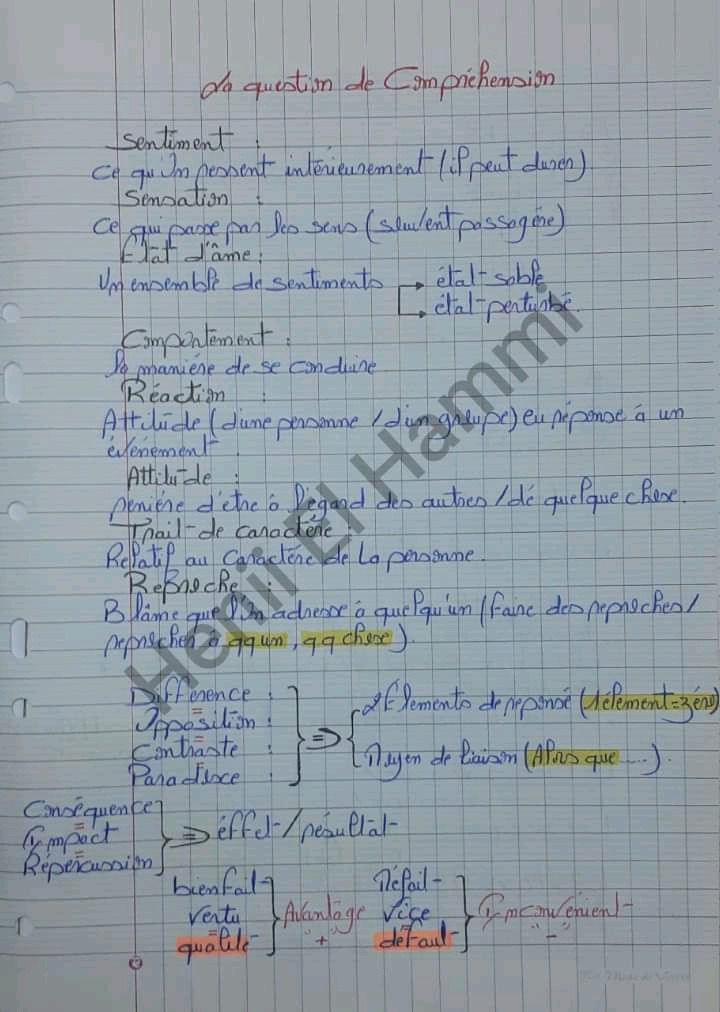 La question de Compréhension
Sentiment :
Ce qu'on ressent intérieurement (il peut durer)
Sensation :
Ce qui passe par les sens (souvent passagère)
État d'âme :
Un ensemble de sentiments → étal-sable
→ étal-perturbé.
Comportement :
la manière de se conduire
Réaction :
Attitude (d'une personne / d'un groupe) en réponse à un
événement
Attitude :
menière d'être à l'égard des autres / de quelque chose.
Trait de caractère
Relatif au caractère de la personne.
Reproche :
Blâme que l'on adresse à quelqu'un (faire des reproches /
reprocher à qq un, qq chose).
Différence :
Opposition :
Contraste :
Paradoxe :
⇒ 2 Élements de reponse (1 élement = zéro)
Moyen de liaison (Alors que .....).
Conséquence
Impact
Répercussion
⇒ éffet / résultat
bienfait
vertu
qualité
Avantage
"+"
Méfait
Vice
défaut
Inconvénient
"-"
Henii El Hammi